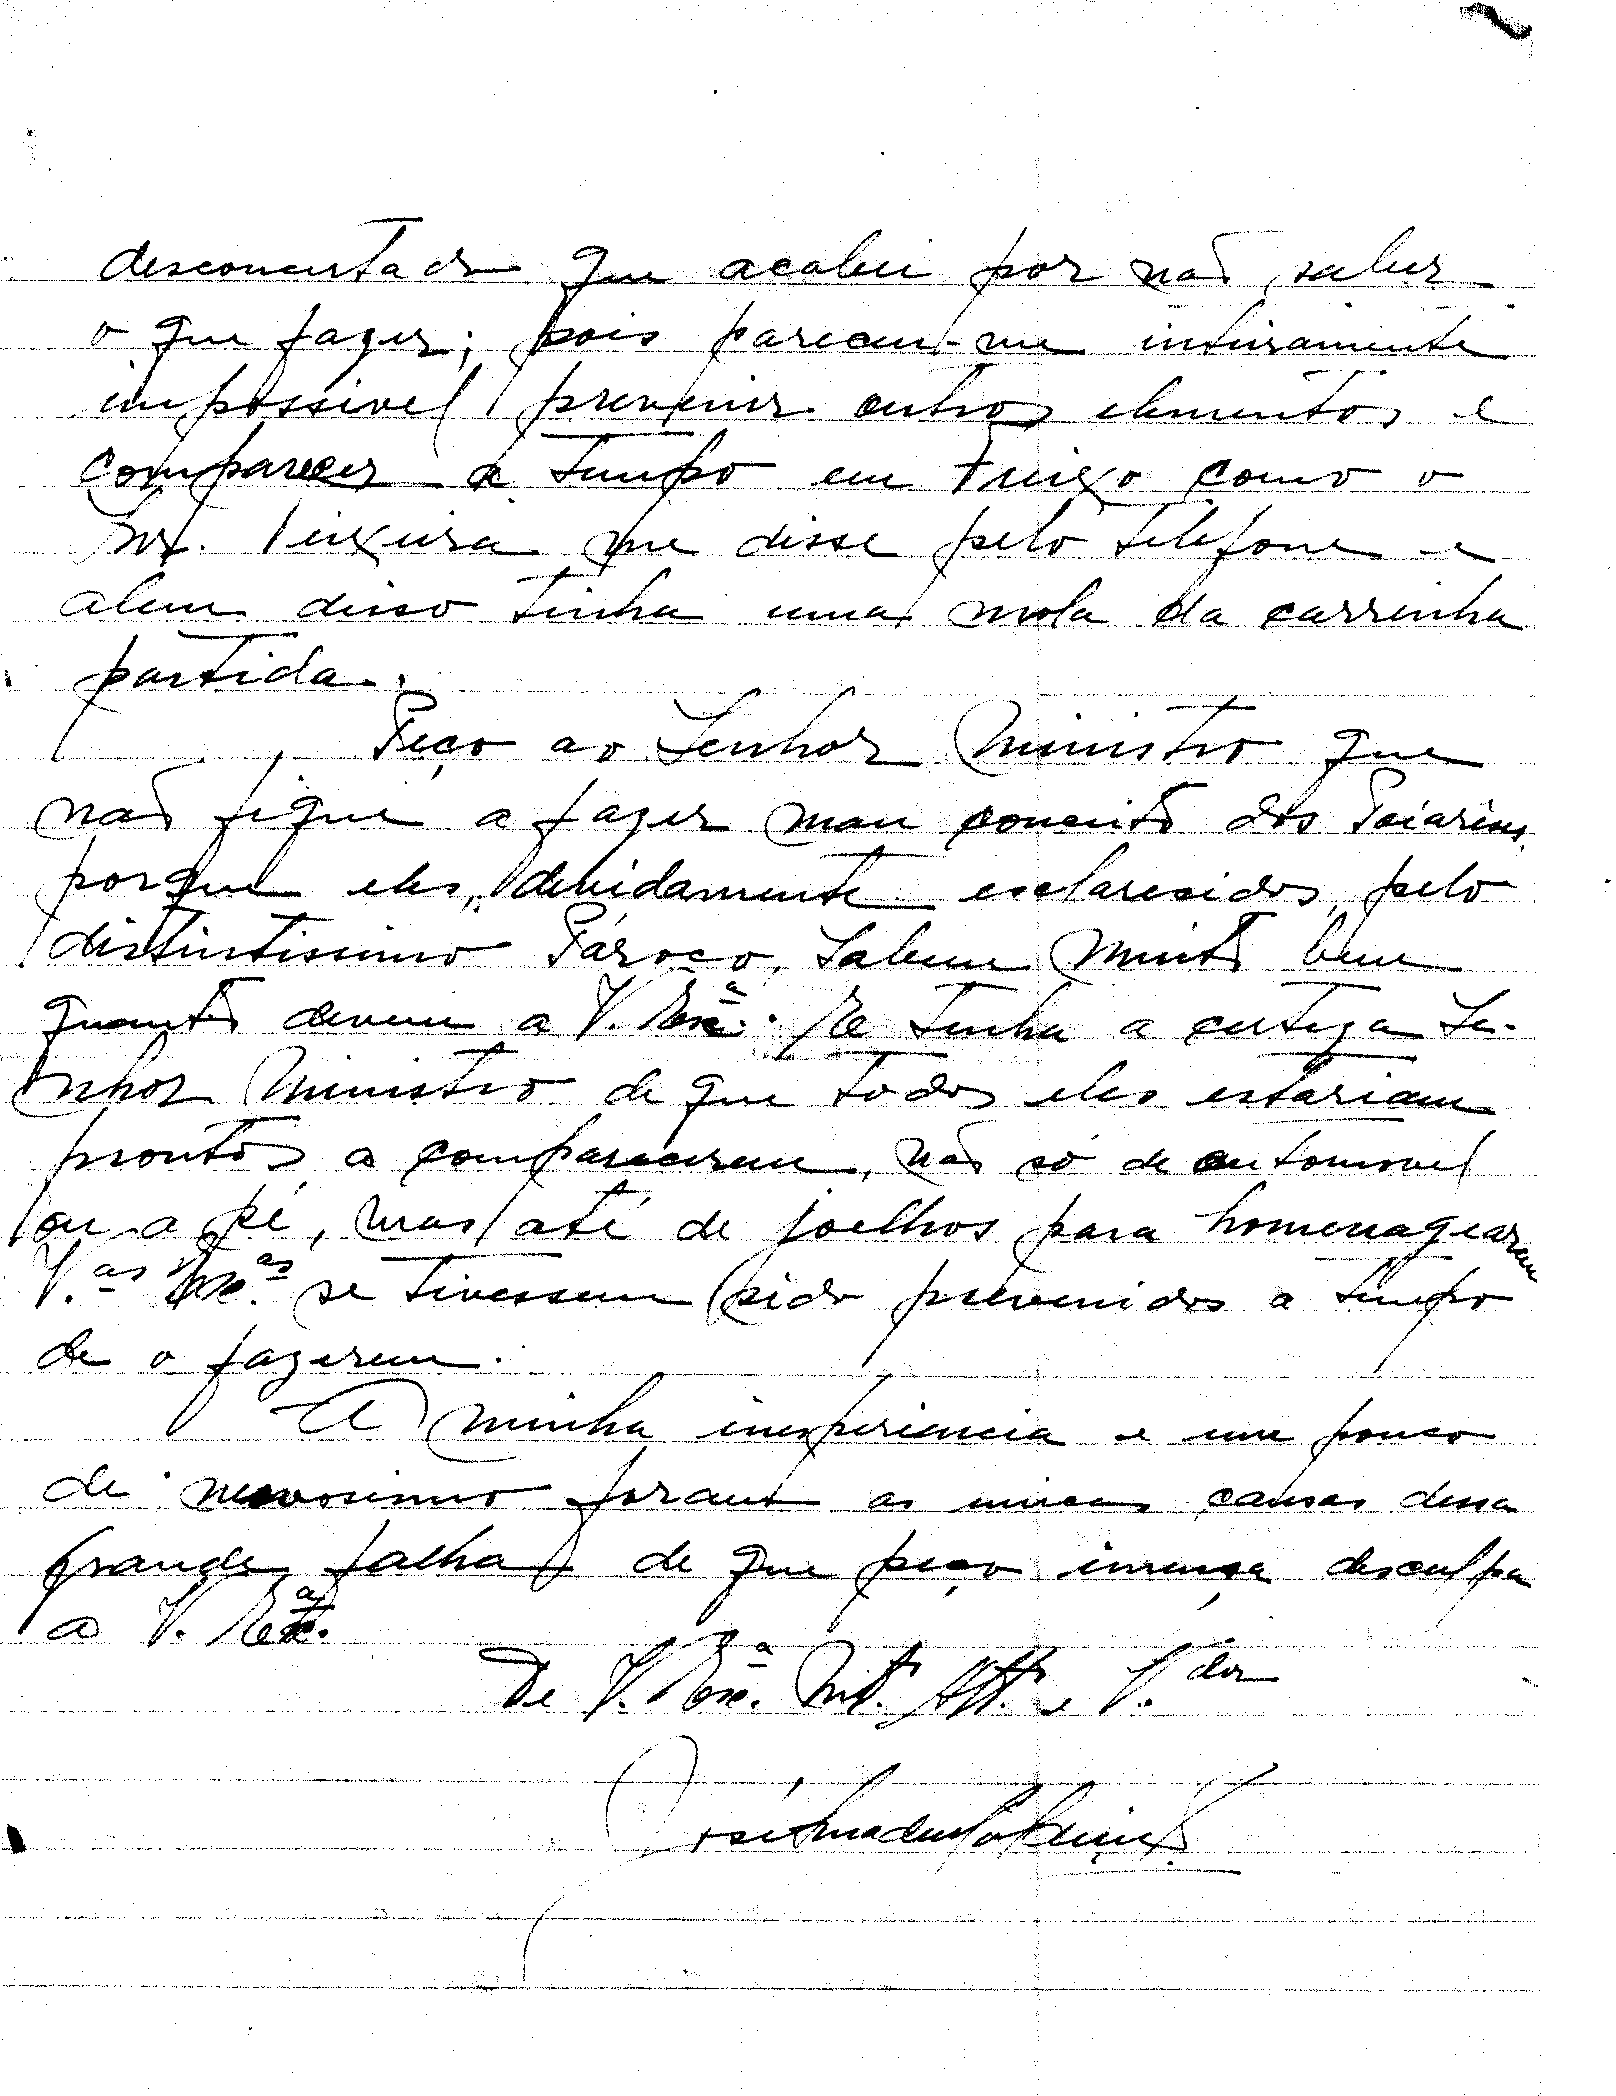 desconcertado que acabei por não saber
o que fazer; pois pareceu-me inteiramente
impossivel prevenir outros elementos e
comparecer a tempo em Freixo como o
Snr. Teixeira me disse pelo telefone e
alem disso tinha uma mola da carrinha
partida.
Peço ao Senhor Ministro que
não fique a fazer mau conceito dos Poiarenses
porque eles, devidamente esclarecidos pelo
distintissimo Pároco, sabem muito bem
quanto devem a V. Exª. E tenha a certeza Se-
nhor Ministro de que todos eles estariam
prontos a comparecerem, não só de automovel
ou a pé, mas até de joelhos para homenagearem
V.as Ex.as se tivessem sido prevenidos a tempo
de o fazerem.
A minha inexperiencia e um pouco
de nervosismo foram as unicas causas dessa
grande falha de que peço imensa desculpa
a V. Exª.
De V. Exª. Mtº. Attº. e V.dor
José